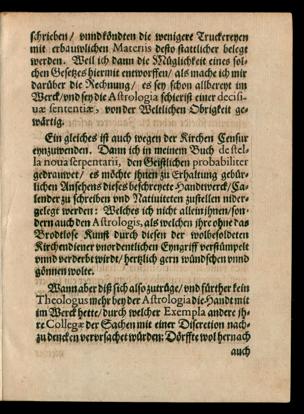 schrieben / vnnd köndten die wenigere Truckereyen
mit erbauwlichen Materiis desto stattlicher belegt
werden. Weil ich dann die Müglichkeit eines sol-
chen Gesetzes hiermit entworffen / als mache ich mir
darüber die Rechnung / es sey schon allbereyt im
Werck / vnd sey die Astrologia schierist einer decisi-
uæ sententiæ, von der Weltlichen Obrigkeit ge-
wärtig.
Ein gleiches ist auch wegen der Kirchen Censur
eynzuwenden. Dann ich in meinem Buch de stel-
la noua serpentarii, den Geistlichen probabiliter
gedrauwet / es möchte jhnen zu Erhaltung gebür-
lichen Ansehens dieses beschreyete Handtwerck / Ca-
lender zu schreiben vnd Natiuiteten zustellen nider-
gelegt werden: Welches ich nicht allein jhnen / son-
dern auch den Astrologis, als welchen jhre ohne das
Brodtlose Kunst durch diesen der wolbesoldeten
Kirchendiener vnordentlichen Eyngriff verstümpelt
vnnd verderbt wirdt / hertzlich gern wündschen vnnd
gönnen wolte.
Wann aber diß sich also zutrüge / vnd fürther kein
Theologus mehr bey der Astrologia die Handt mit
im Werck hette / durch welcher Exempla andere jh-
re Collegæ der Sachen mit einer Discretion nach-
zudencken vervrsachet würden: Dörffte wol hernach
auch